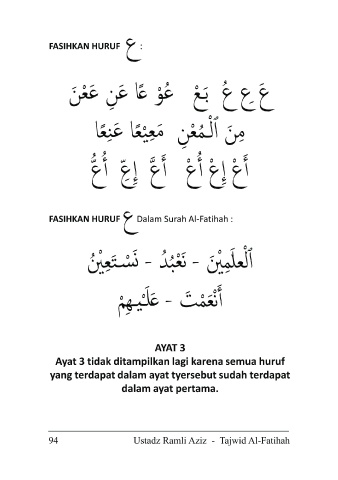 FASIHKAN HURUF ع :
عَ عِ عُ بَعْ عُوْ عًا عَنِ عَعْنَ
مِنَ ٱلْمُعْنِ مَعِيْعًا عَنِعًا
أَعْ إِعْ أُعْ أَعَّ إِعِّ أُعُّ
FASIHKAN HURUF ع Dalam Surah Al-Fatihah :
ٱلْعٰلَمِيْنَ - نَعْبُدُ - نَسْتَعِيْنُ
أَنْعَمْتَ - عَلَيْهِمْ
AYAT 3
Ayat 3 tidak ditampilkan lagi karena semua huruf
yang terdapat dalam ayat tyersebut sudah terdapat
dalam ayat pertama.
94 Ustadz Ramli Aziz - Tajwid Al-Fatihah